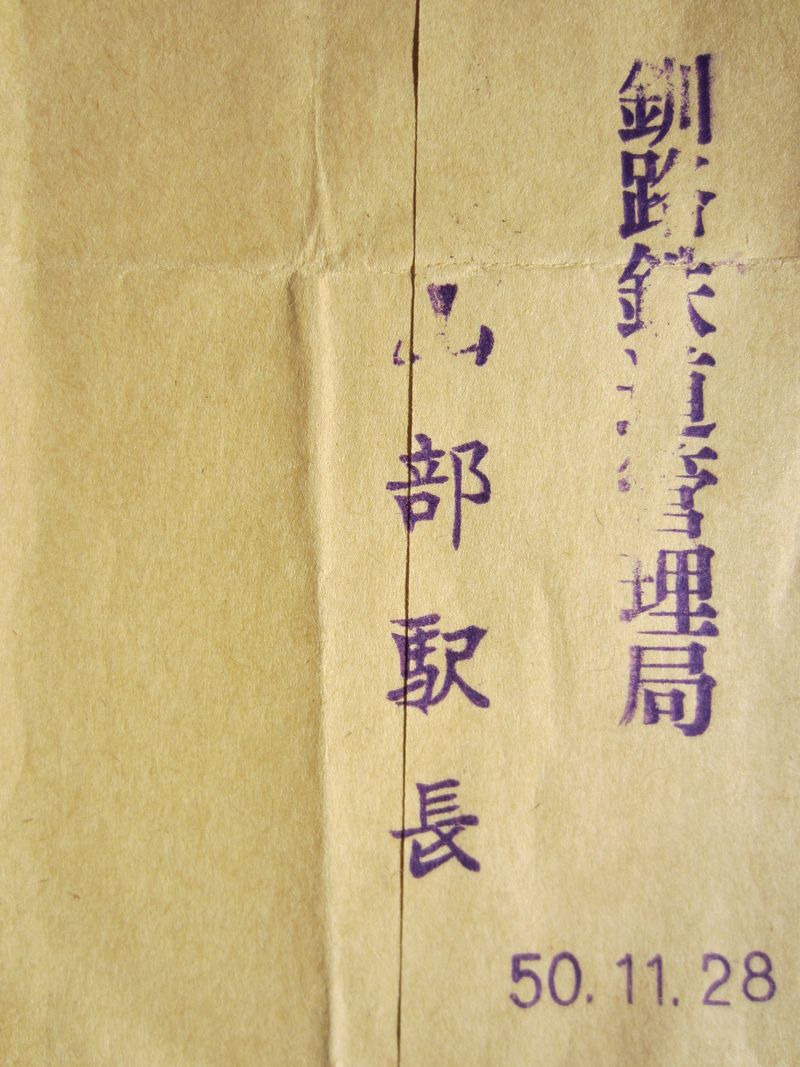 釧路鉄道管理局
山部駅長
50.11.28